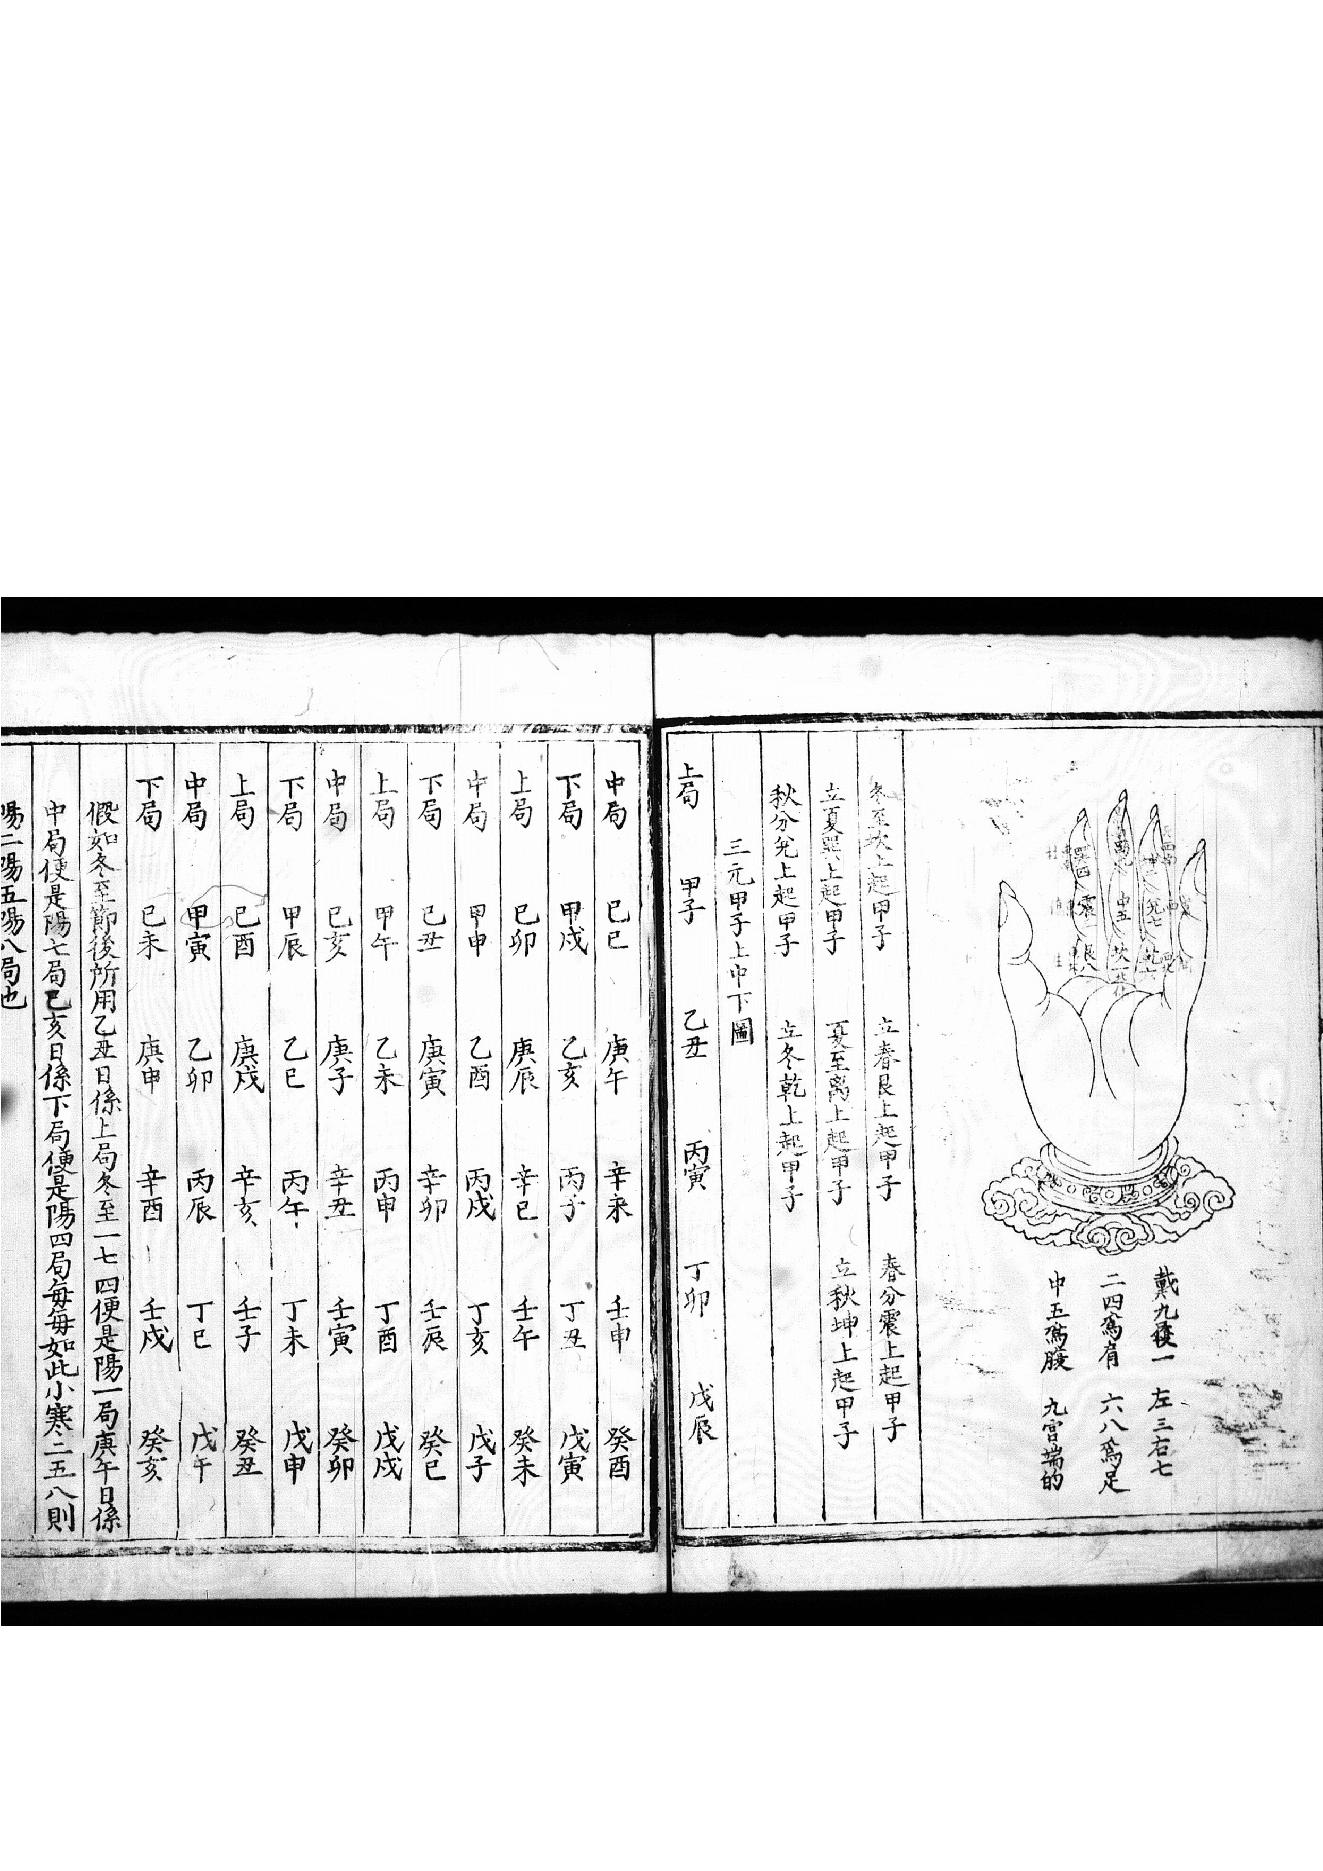 戴九履一　左三右七
二四為肩　六八為足
中五為腹　九宮端的
巽四
震三
艮八
中五
坎一
兌七
乾六
冬至坎上起甲子　立春艮上起甲子　春分震上起甲子
立夏巽上起甲子　夏至离上起甲子　立秋坤上起甲子
秋分兌上起甲子　立冬乾上起甲子
三元甲子上中下圖
上局　甲子　乙丑　丙寅　丁卯　戊辰
中局　己巳　庚午　辛未　壬申　癸酉
下局　甲戌　乙亥　丙子　丁丑　戊寅
上局　己卯　庚辰　辛巳　壬午　癸未
中局　甲申　乙酉　丙戌　丁亥　戊子
下局　己丑　庚寅　辛卯　壬辰　癸巳
上局　甲午　乙未　丙申　丁酉　戊戌
中局　己亥　庚子　辛丑　壬寅　癸卯
下局　甲辰　乙巳　丙午　丁未　戊申
上局　己酉　庚戌　辛亥　壬子　癸丑
中局　甲寅　乙卯　丙辰　丁巳　戊午
下局　己未　庚申　辛酉　壬戌　癸亥
假如冬至節後所用乙丑日係上局冬至一七四便是陽一局庚午日係
中局便是陽七局己亥日係下局便是陽四局每每如此小寒二五八則
陽二陽五陽八局也